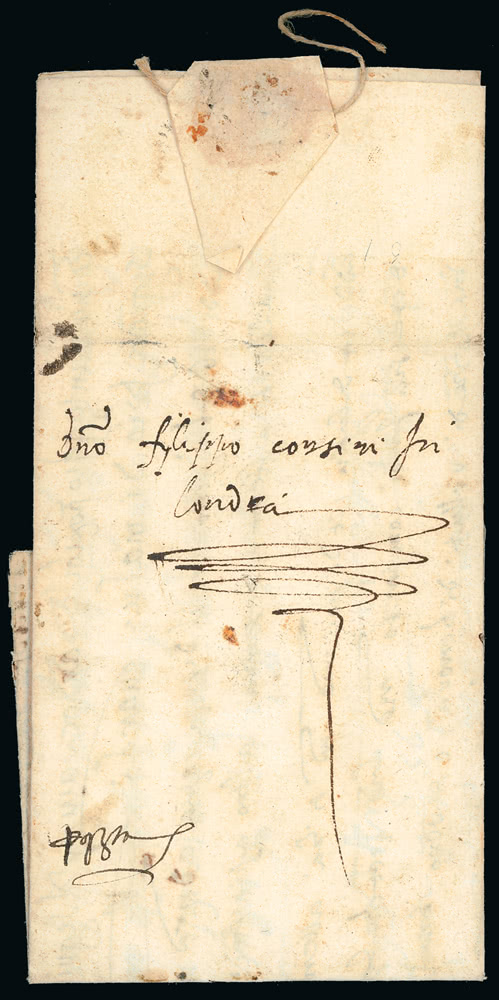 Dno filippo corsini In
Londra